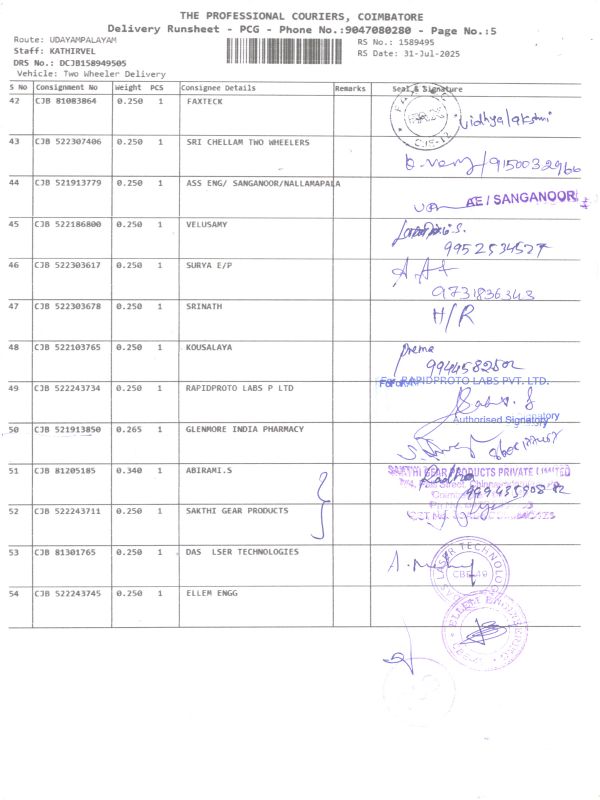 THE PROFESSIONAL COURIERS, COIMBATORE
Delivery Runsheet - PCG - Phone No.:9047080280 - Page No.:5
Route: UDAYAMPALAYAM
RS No.: 1589495
Staff: KATHIRVEL
RS Date: 31-Jul-2025
DRS No.: DCJB158949505
Vehicle: Two Wheeler Delivery
S No Consignment No Weight PCS Consignee Details Remarks Seal & Signature
42 CJB 81083864 0.250 1 FAXTECK
Vidhyalakshmi
43 CJB 522307406 0.250 1 SRI CHELLAM TWO WHEELERS
/9150032966
44 CJB 521913779 0.250 1 ASS ENG/ SANGANOOR/NALLAMAPALA
AE / SANGANOOR
45 CJB 522186800 0.250 1 VELUSAMY
9952534527
46 CJB 522303617 0.250 1 SURYA E/P
9731836343
47 CJB 522303678 0.250 1 SRINATH H/R
48 CJB 522103765 0.250 1 KOUSALAYA Prema
9944582502
49 CJB 522243734 0.250 1 RAPIDPROTO LABS P LTD
For RAPIDPROTO LABS PVT. LTD.
Authorised Signatory
50 CJB 521913850 0.265 1 GLENMORE INDIA PHARMACY
51 CJB 81205185 0.340 1 ABIRAMI.S
SAKTHI GEAR PRODUCTS PRIVATE LIMITED
Radha
52 CJB 522243711 0.250 1 SAKTHI GEAR PRODUCTS
53 CJB 81301765 0.250 1 DAS LSER TECHNOLOGIES
DAS LASER TECHNOLOGIES
54 CJB 522243745 0.250 1 ELLEM ENGG